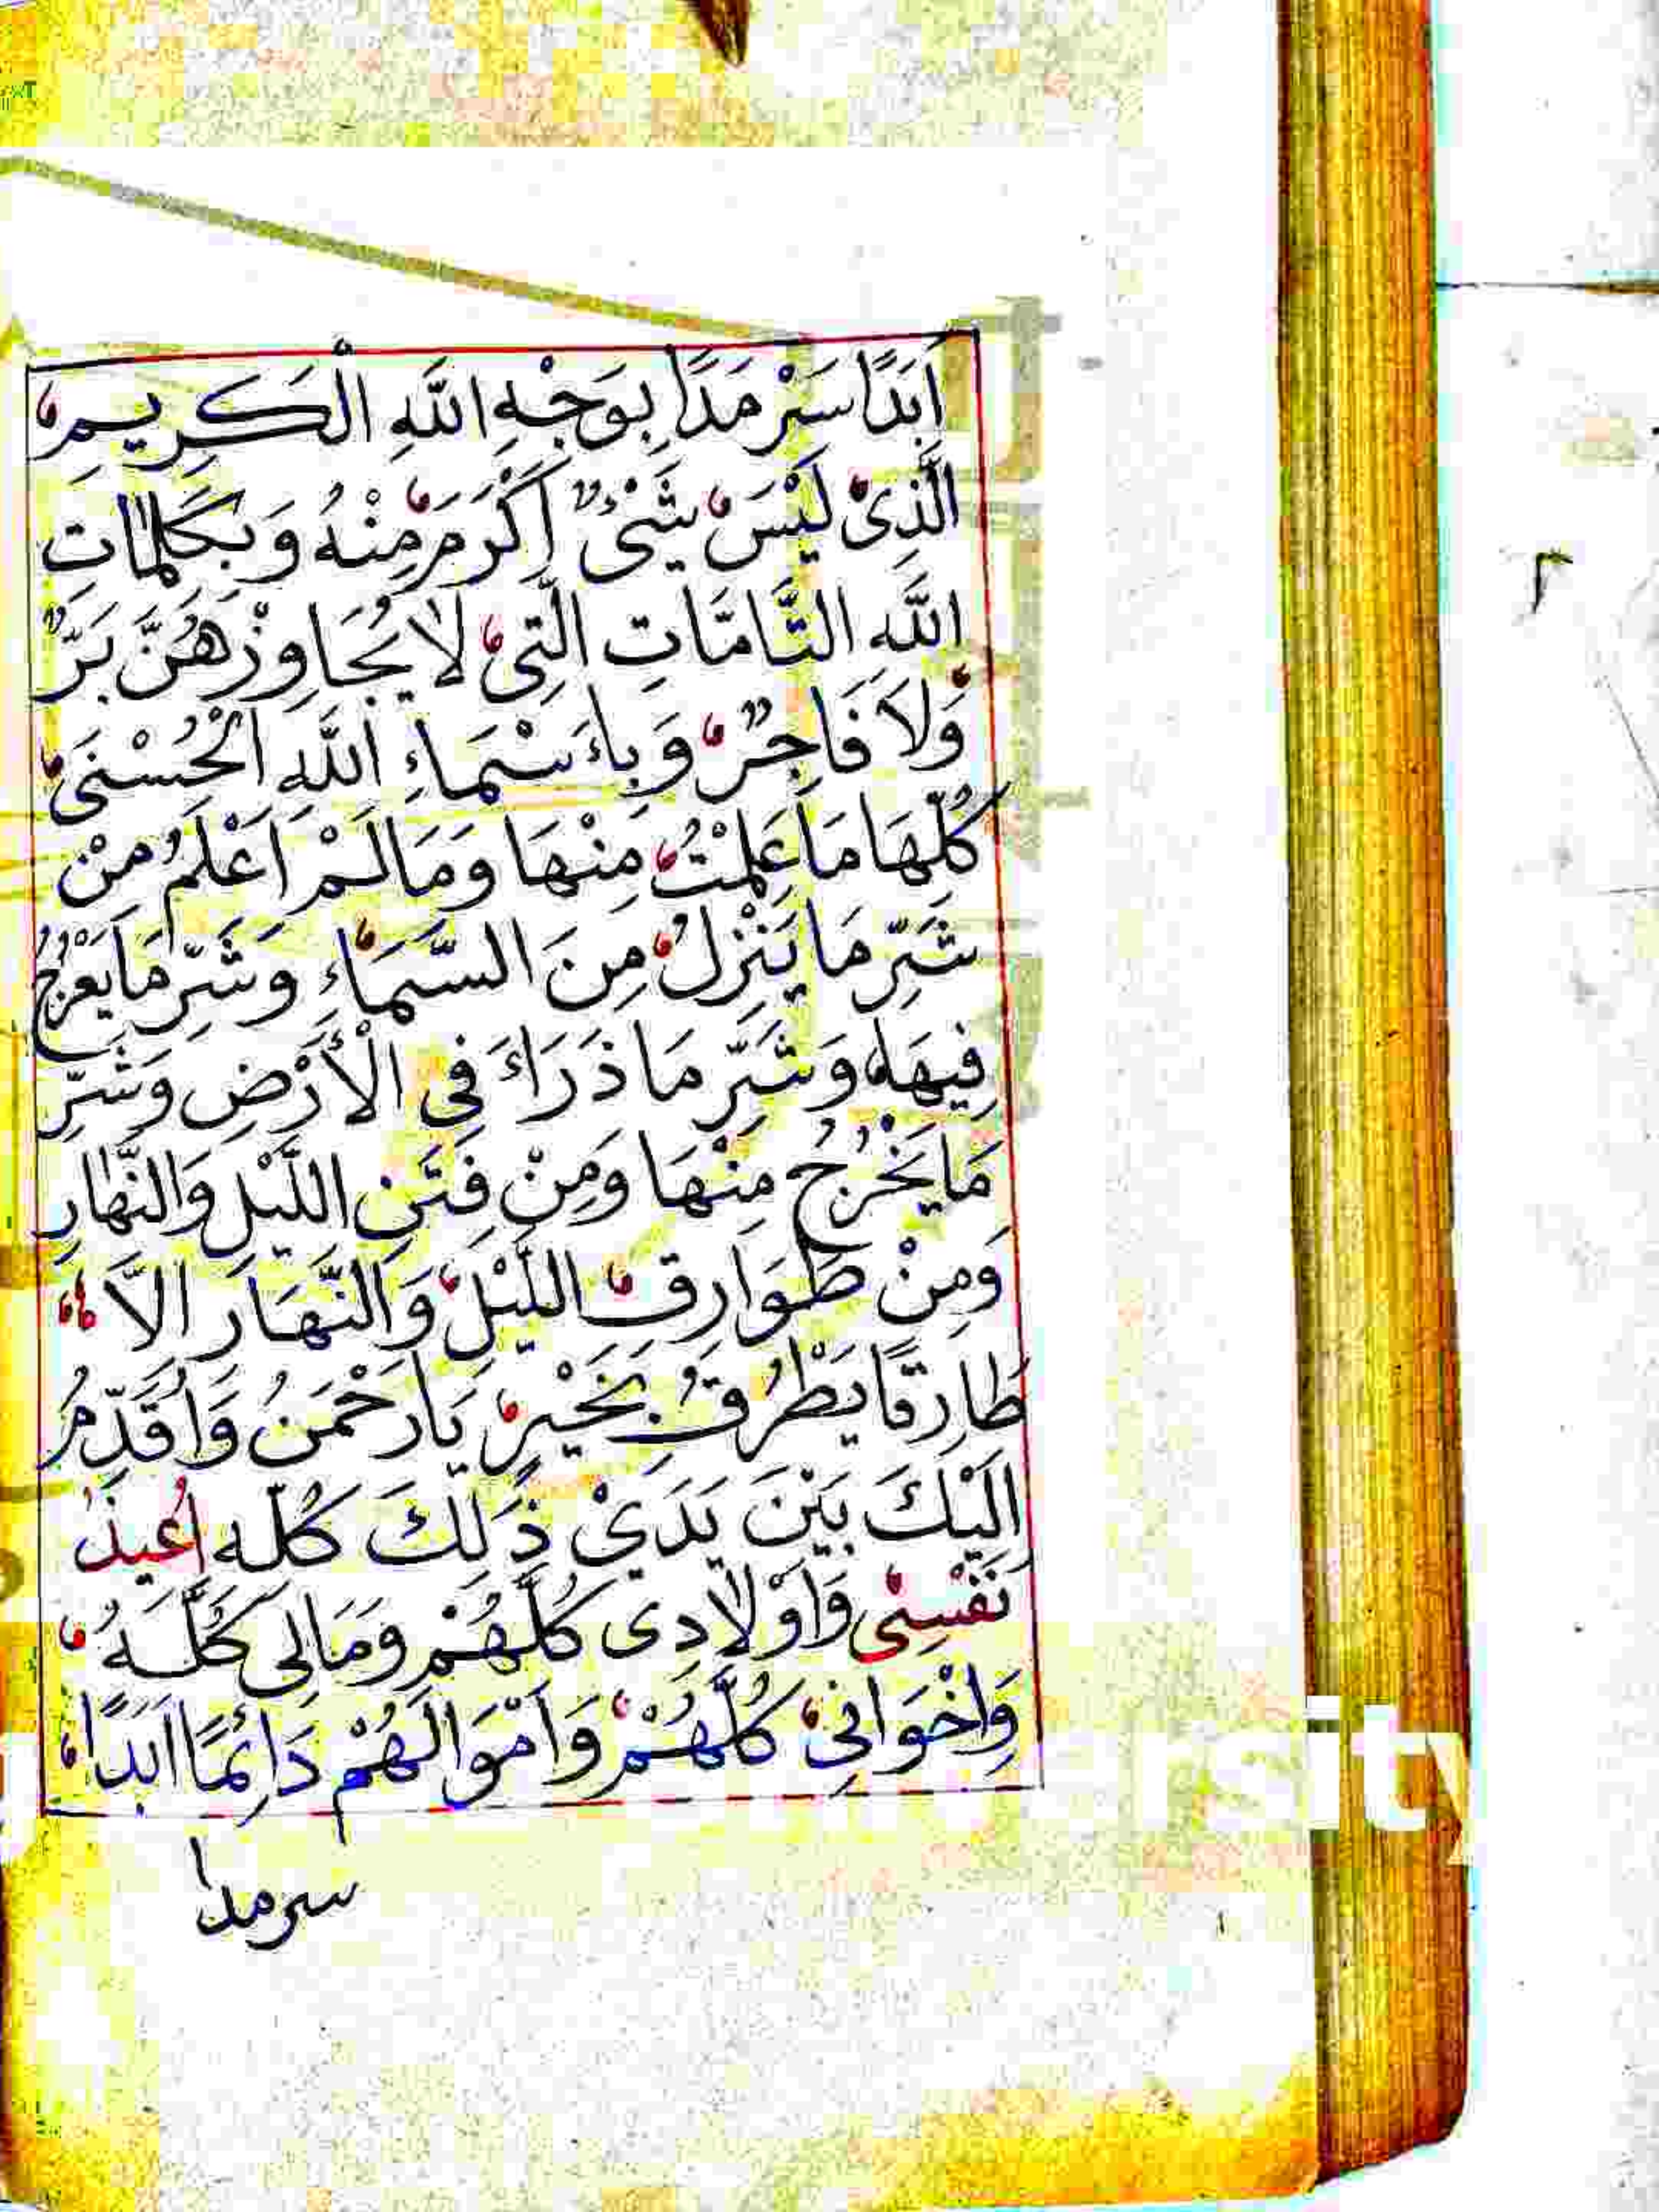 اَبَدًا سَرْمَدًا بِوَجْهِ اللَّهِ الْكَرِيمِ
الَّذِىْ لَيْسَ شَىْءٌ اَكْرَمَ مِنْهُ وَبِكَلِمَاتِ
اللَّهِ التَّامَّاتِ الَّتِى لَا يُجَاوِزُهُنَّ بَرٌّ
وَلَا فَاجِرٌ وَبِاَسْمَاءِ اللَّهِ الْحُسْنَى
كُلِّهَا مَا عَلِمْتُ مِنْهَا وَمَا لَمْ اَعْلَمُ مِنْ
شَرِّ مَا يَنْزِلُ مِنَ السَّمَاءِ وَشَرِّ مَا يَعْرُجُ
فِيهَا وَشَرِّ مَا ذَرَاءَ فِى الْأَرْضِ وَشَرِّ
مَا يَخْرُجُ مِنْهَا وَمِنْ فِتَنِ اللَّيْلِ وَالنَّهَارِ
وَمِنْ طَوَارِقِ اللَّيْلِ وَالنَّهَارِ اِلَّا
طَارِقًا يَطْرُقُ بِخَيْرٍ يَا رَحْمَنُ وَاُقَدِّمُ
اِلَيْكَ بَيْنَ يَدَيْ ذَلِكَ كُلِّهِ اُعِيذُ
نَفْسِىْ وَاَوْلَادِى كُلَّهُمْ وَمَالِى كُلَّهُ
وَاِخْوَانِىْ كُلَّهُمْ وَاَمْوَالَهُمْ دَائِمًا اَبَدًا
سرمدا
ity
٢